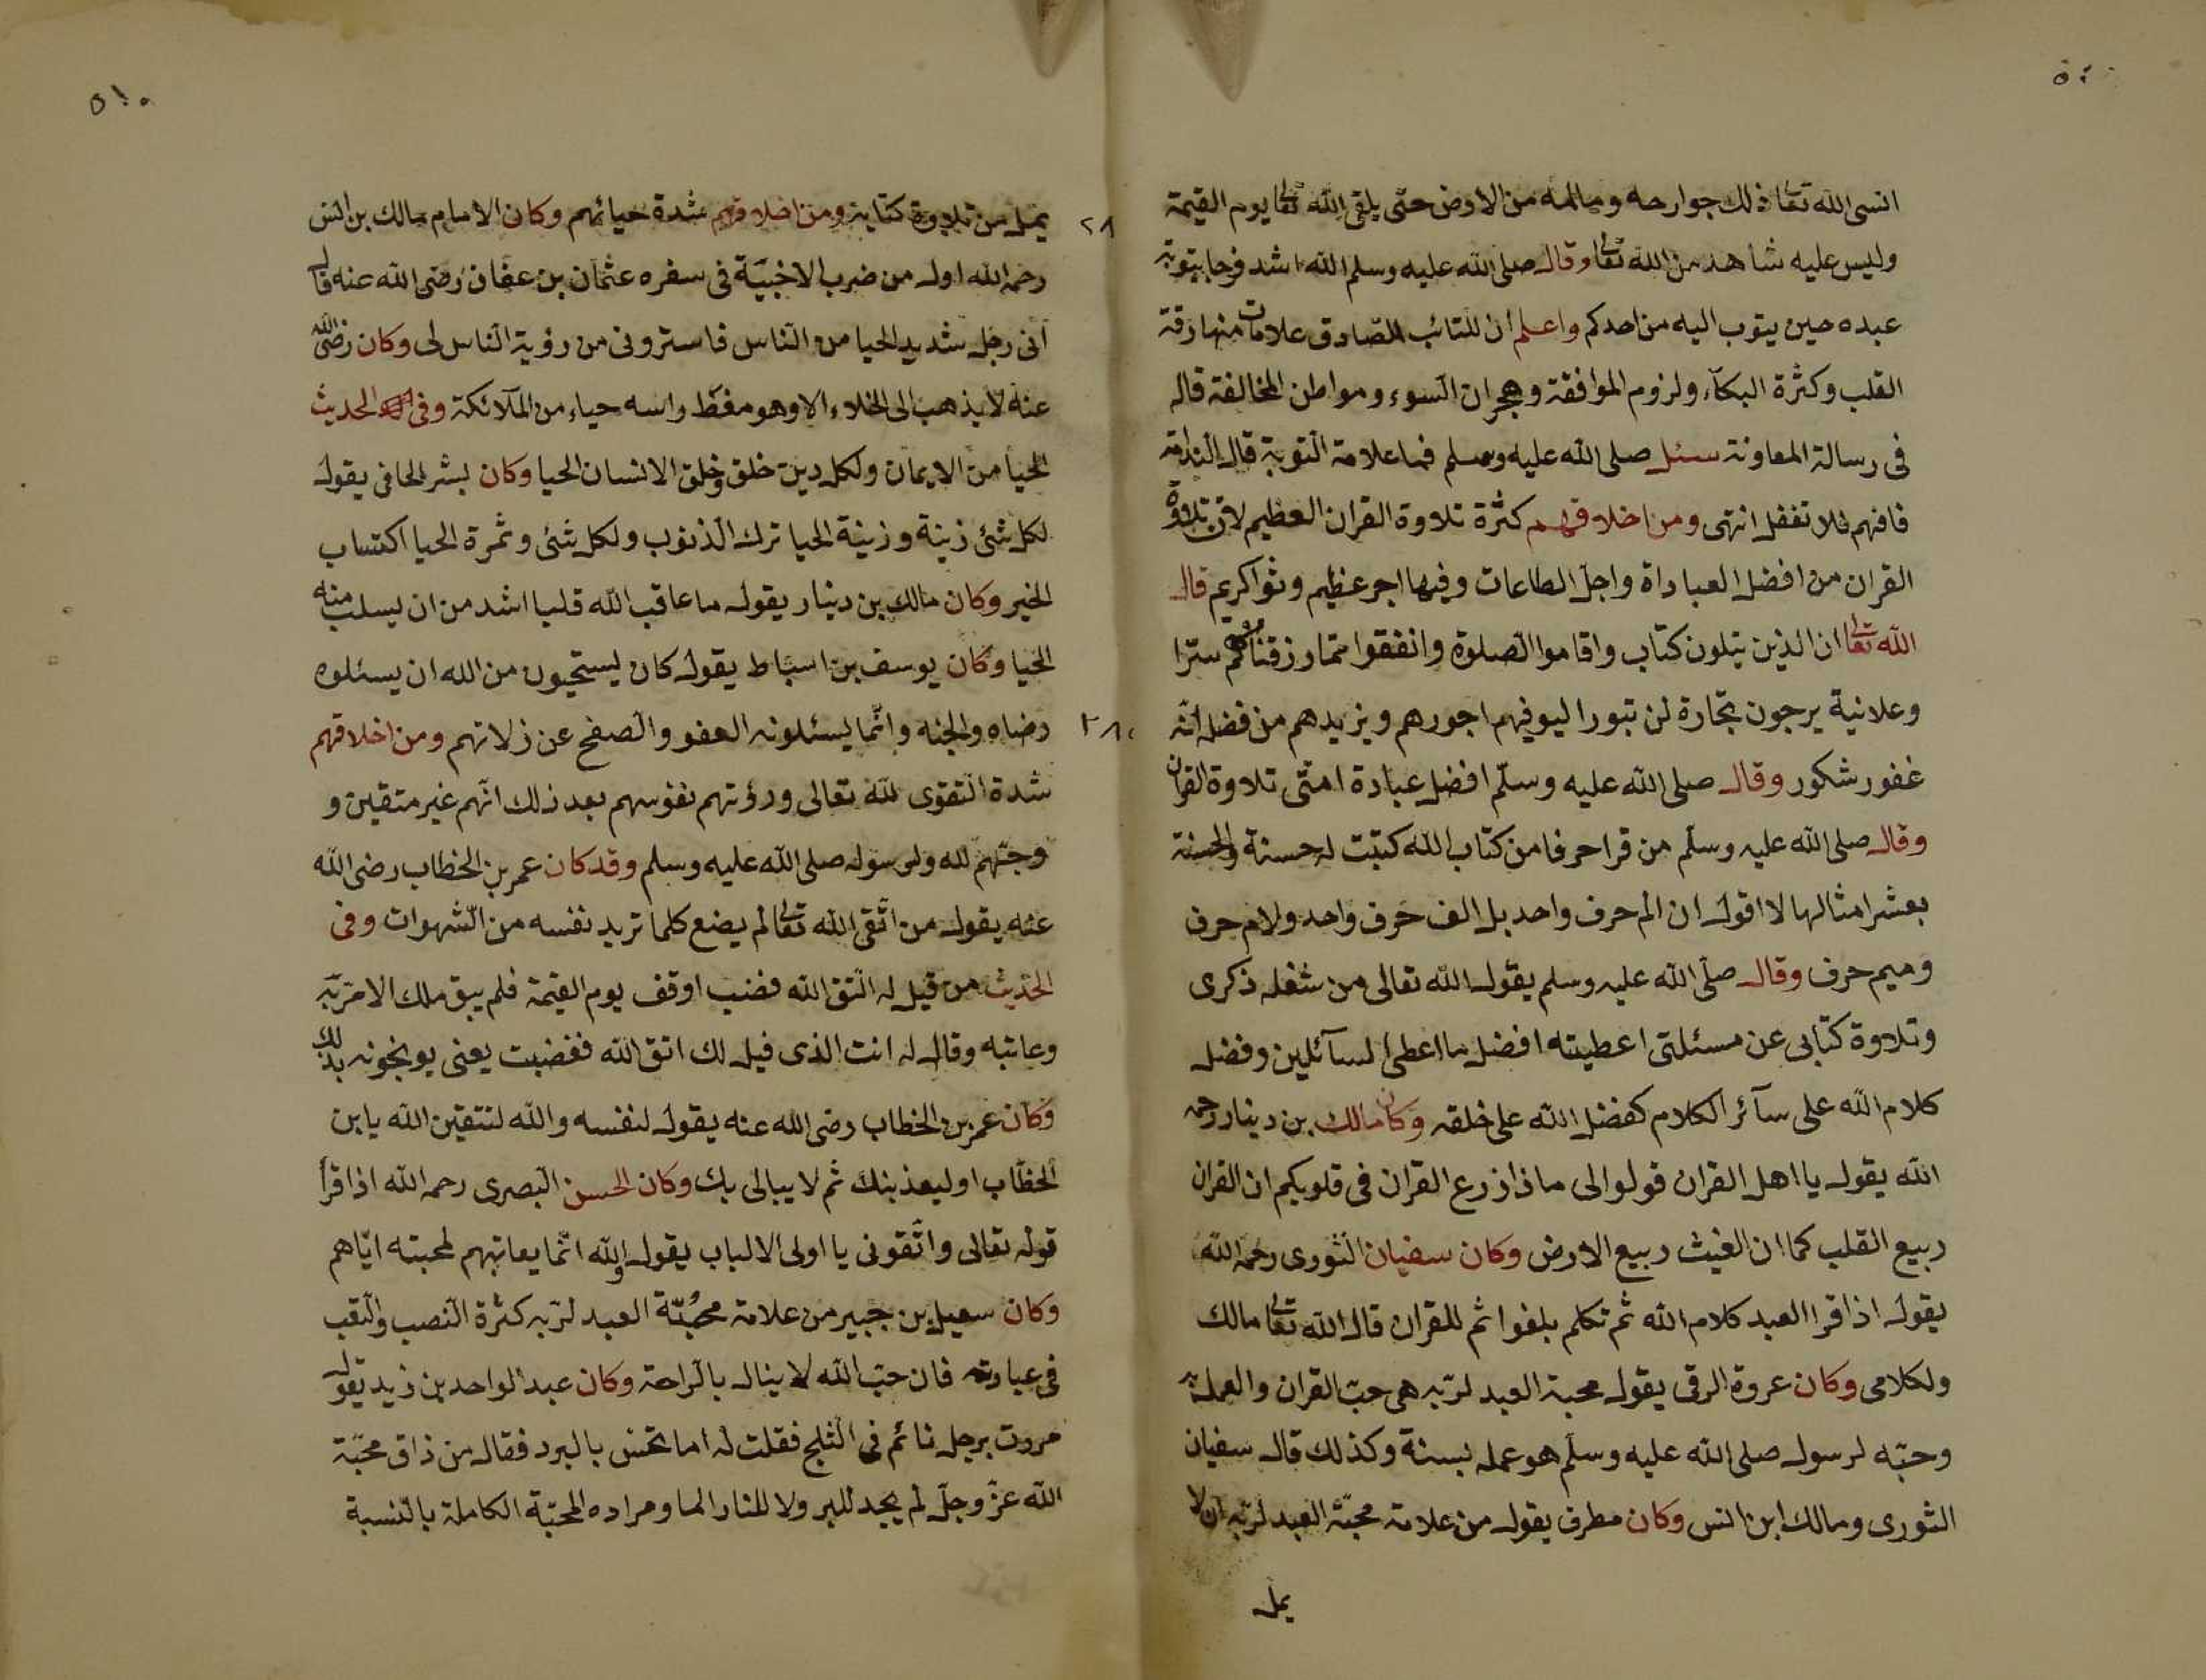 انسى الله تعالى ذلك جوارحه ومالمه من الارض حتى يلقى الله تعالى يوم القيمة
وليس عليه شاهد من الله تعالى وقال صلى الله عليه وسلم الله اشد فرحا بتوبة
عبده حين يتوب اليه من احدكم واعلم ان للتائب الصّادق علامات منها رقة
القلب وكثرة البكآء ولزوم الموافقة وهجران السوء ومواطن المخالفة قاله
فى رسالة المعاونة سئل صلى الله عليه وسلم فما علامة التوبة قال الندامة
فافهم فلا تغفل انتهى ومن اخلاقهم كثرة تلاوة القران العظيم لان تلاوة
القران من افضل العباداة واجل الطاعات وفيها اجر عظيم وثوا كريم قال
الله تعالى ان الذين يتلون كتاب واقاموا الصلوة وانفقوا ممّا رزقناهم سرّا
وعلانية يرجون تجارة لن تبورا ليوفيهم اجورهم ويزيدهم من فضله انّه
غفور شكور وقال صلى الله عليه وسلّم افضل عبادة امتى تلاوة القران
وقال صلى الله عليه وسلّم من قرا حرفا من كتاب الله كتبت له حسنة والحسنة
بعشر امثالها لا اقول ان الم حرف واحد بل الف حرف واحد ولام حرف
وميم حرف وقال صلّى الله عليه وسلم يقول الله تعالى من شغله ذكرى
وتلاوة كتابى عن مسئلتى اعطيته افضل ما اعطى السآئلين وفضل
كلام الله على سآئر الكلام كفضل الله على خلقه وكان مالك بن دينار رحمه
الله يقول يا اهل القران قولوا لى ماذا زرع القران فى قلوبكم ان القران
ربيع القلب كما ان الغيث ربيع الارض وكان سفيان الثورى رحمه الله
يقول اذا قرا العبد كلام الله ثم تكلم بلغوا ثم للقران قال الله تعالى مالك
ولكلامى وكان عروة الرقى يقول محبة العبد لربّه هى حبّ القران والعمل به
وحبّه لرسول صلى الله عليه وسلّم هو عمله بسنة وكذلك قال سفيان
الثورى ومالك ابن انس وكان مطرف يقول من علامة محبّة العبد لربّه ان لا
يمل
٥١٠
يمل من تلاوة كتابه ومن اخلاقهم شدة حيائهم وكان الامام مالك بن انس
رحمه الله اول من ضرب الاخبيّة فى سفره عثمان بن عفان رضى الله عنه قال
انى رجل شديد الحيا من الناس فاستروني من رؤية الناس لى وكان رضى الله
عنه لا يذهب الى الخلاء الا وهو مغطّ راسه حياء من الملآئكة وفى الحديث
الحيا من الايمان ولكل دين خلق وخلق الانسان الحيا وكان بشر الحافى يقول
لكل شئ زينة وزينة الحيا ترك الذنوب ولكل شئ وثمرة الحيا اكتساب
الخير وكان مالك بن دينار يقول ما عاقب الله قلبا اشد من ان يسلب منه
الحيا وكان يوسف بن اسباط يقول كان يستحيون من الله ان يسئلوه
رضاه والجنه وانّما يسئلونه العفو والصفح عن زلاتهم ومن اخلاقهم
شدة التقوى لله تعالى ورؤتهم نفوسهم بعد ذلك انّهم غير متقين و
وحبّهم لله ولرسوله صلى الله عليه وسلم وقد كان عمر بن الخطاب رضى الله
عنه يقول من اتّقى الله تعالى لم يضع كلما تريد نفسه من الشهوات وفى
الحديث من قيل له اتّق الله فضب اوقف يوم القيمة فلم يبق ملك الا مرّ به
وعاتبه وقال له انت الذى قيل لك اتق الله فغضبت يعنى يوبخونه بذلك
وكان عمر بن الخطاب رضى الله عنه يقول لنفسه والله لتتقين الله يا بن
الخطّاب او ليعذبنك ثم لا يبالى بك وكان الحسن البصرى رحمه الله اذا قرأ
قوله تعالى واتّقونى يا اولى الالباب يقول والله انّما يعاتبهم لمحبته ايّاهم
وكان سعيد بن جبير من علامة محبّة العبد لربّه كثرة النصب والتعب
فى عبادته فان حبّ الله لا ينال بالراحة وكان عبد الواحد بن زيد يقول
مررت برجل نائم فى الثلج فقلت له اما تحس بالبرد فقال من ذاق محبّة
الله عزّ وجلّ لم يجد للبر ولا للنار الما ومراده المحبّة الكاملة بالنسبة